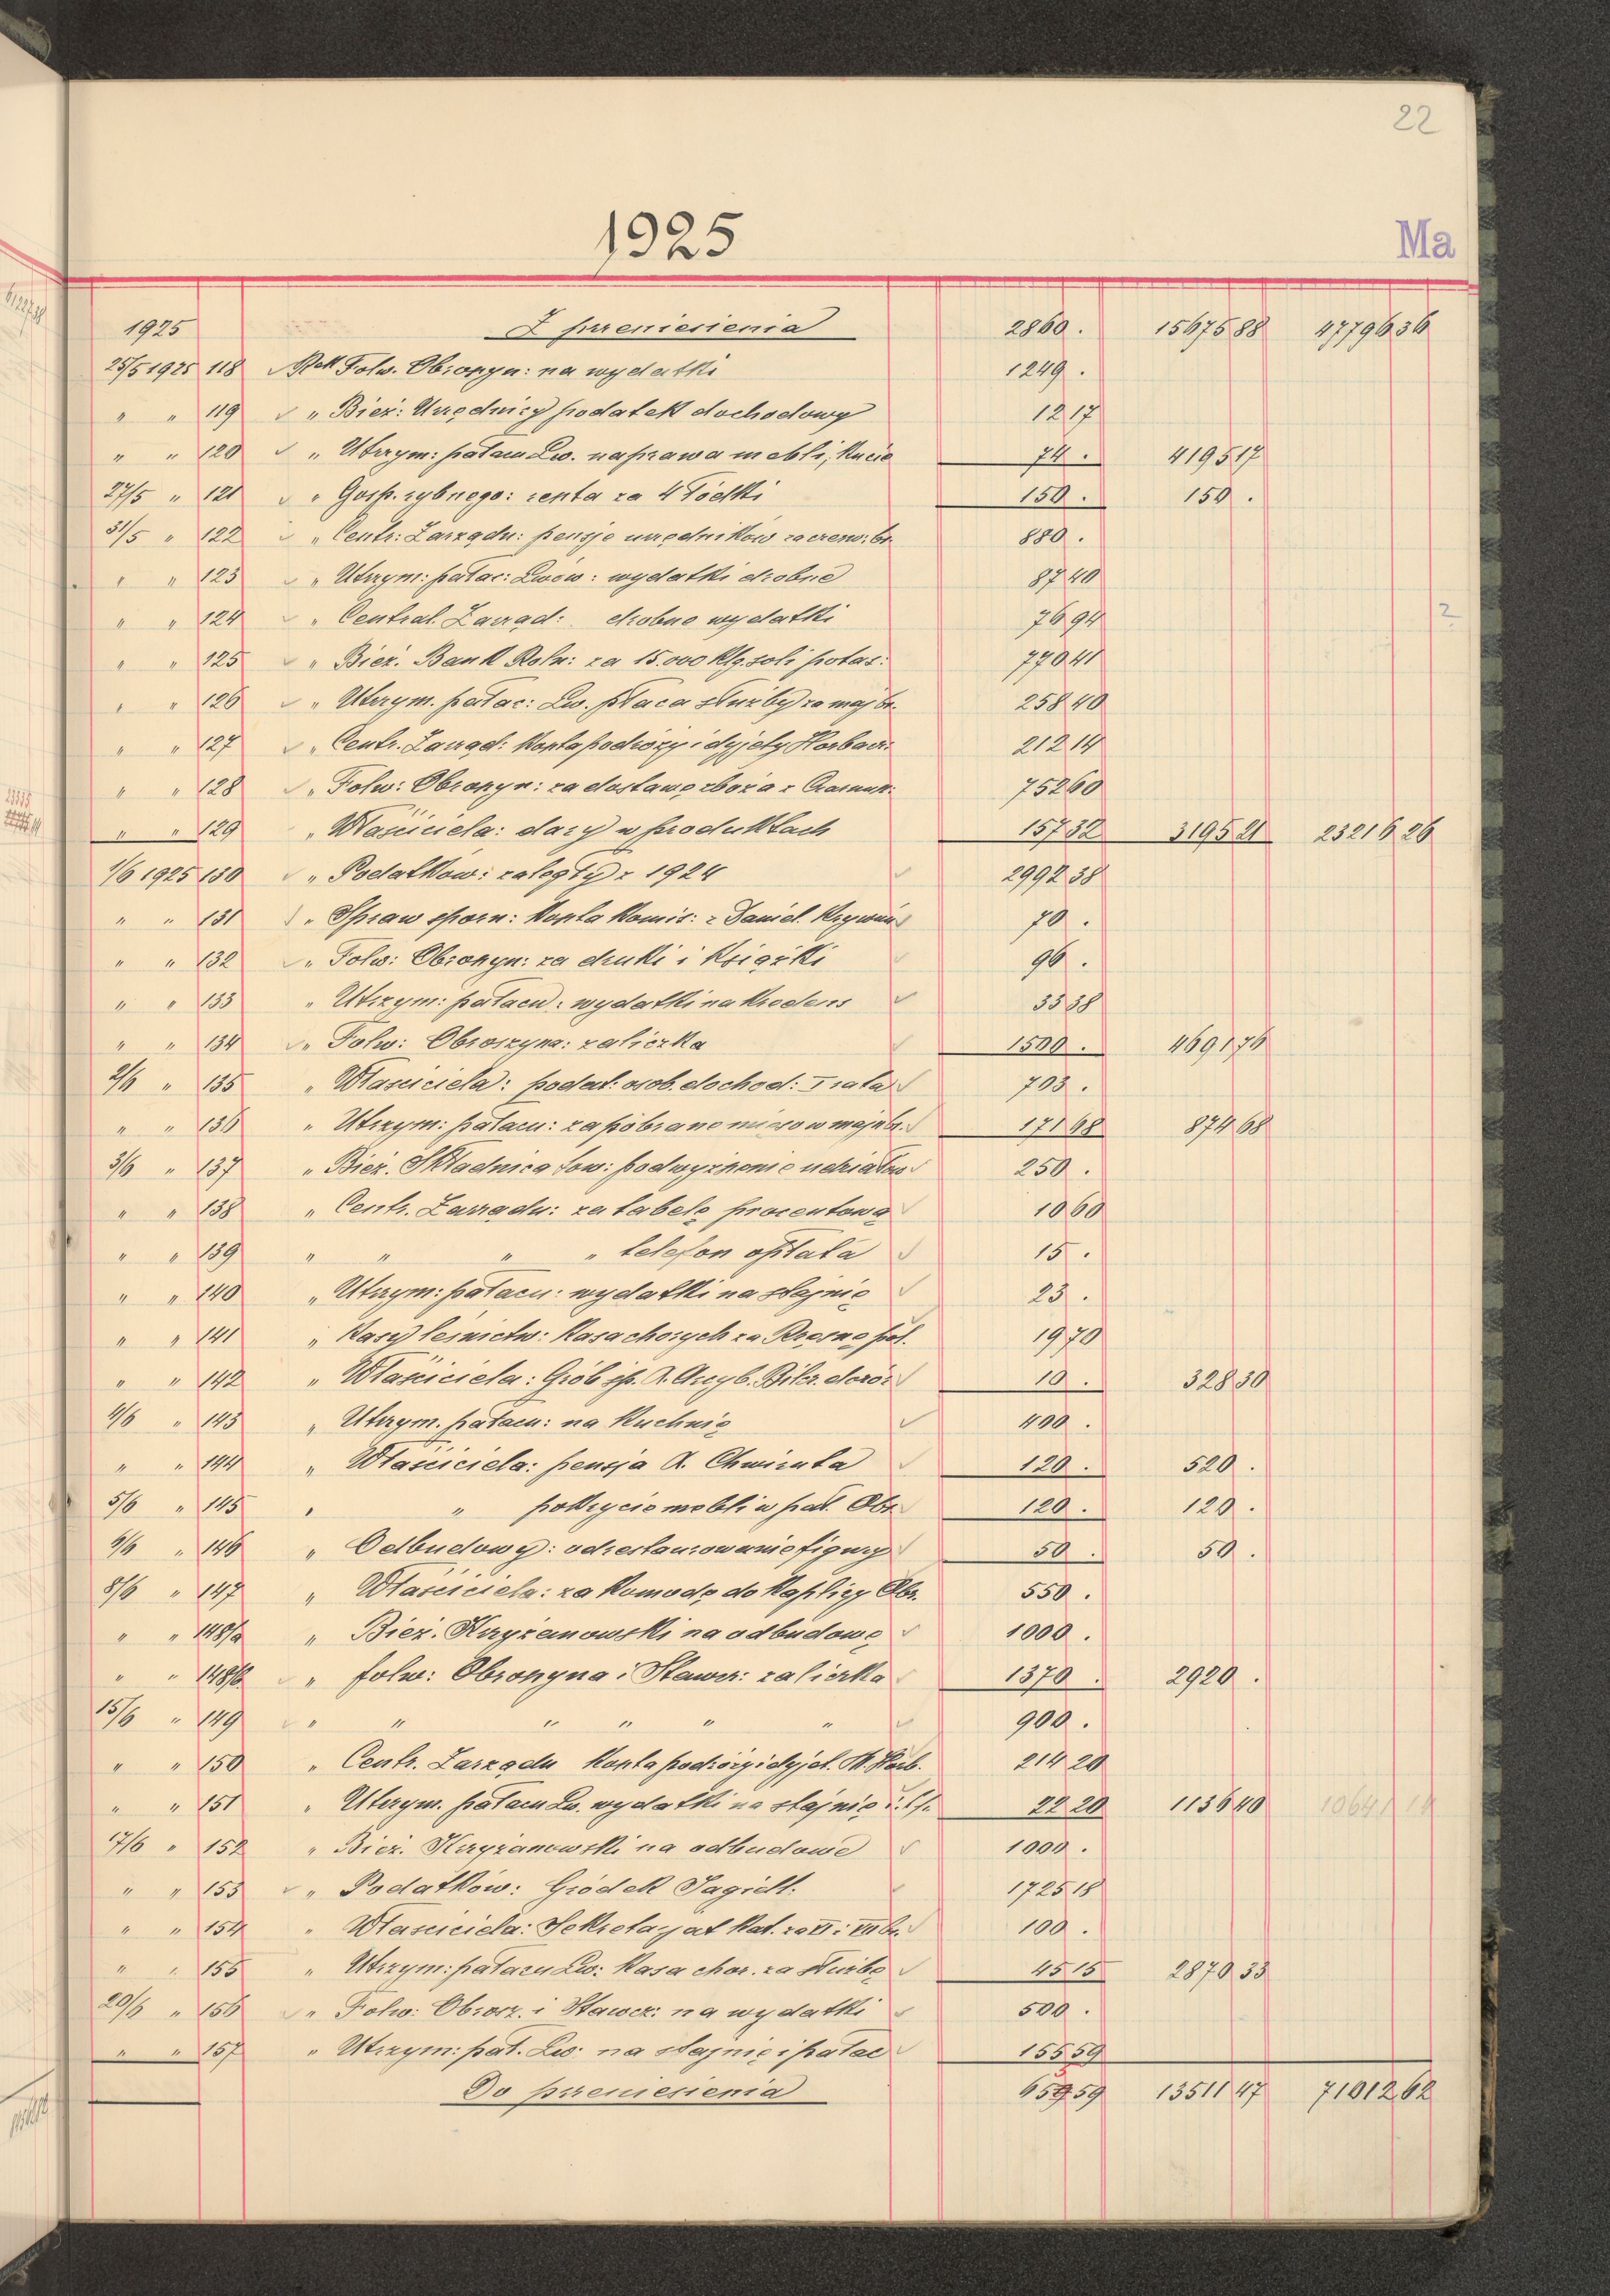 22
1925
Ma
1925 Z przeniesienia 2860 . 15675 88 47796 36
25/5 1925 118 Rek Folw. Obroszyn: na wydatki 1249 .
" " 119 " Bież: Urzędnicy podatek dochodowy 12 17
" " 120 " Utrzym: pałacu Lw. naprawa mebli, kucie 74 . 4195 17
27/5 " 121 " Gosp. rybnego: renta za 4 łódki 150 . 150 .
31/5 " 122 " Centr: Zarządu: pensje urzędników za czerw. br. 880 .
" " 123 " Utrzym: pałac: Lwów: wydatki drobne 87 40
" " 124 " Central. Zarząd: drobne wydatki 76 94
" " 125 " Bież. Bank Roln: za 15.000 klg soli potas: 770 41
" " 126 " Utrzym. pałac: Lw. płaca służby za maj br. 258 40
" " 127 " Centr. Zarząd: Konta podróży i dyjety Horbacz: 212 14
" " 128 " Folw: Obroszyn: za dostawę zboża z 752 60
" " 129 " Właściciela: dary w produktach 157 32 3195 21 23216 26
1/6 1925 130 " Podatków: zaległy z 1924 2992 38
" " 131 " Spraw sporn: Konta Komis: z Daniel. 70 .
" " 132 " Folw: Obroszyn: za druki i książki 96 .
" " 133 " Utrzym: pałacu: wydatki na kredens 33 38
" " 134 " Folw: Obroszyna: zaliczka 1500 . 4691 76
2/6 " 135 " Właściciela: podat: osob. dochod: I rata 703 .
" " 136 " Utrzym: pałacu: za pobrane mięso w maju br. 171 68 874 68
3/6 " 137 " Bież. Składnica tow: podwyższenie udziałów 250 .
" " 138 " Centr. Zarządu: za tabelę procentową 10 60
" " 139 " " " " telefon opłata 15 .
" " 140 " Utrzym: pałacu: wydatki na stajnię 23 .
" " 141 " Kasy leśnictw: Kasa chorych za Rzęsnę pol. 19 70
" " 142 " Właściciela: Grób śp. X. Arcyb. Bilcz. dozór 10 . 328 30
4/6 " 143 " Utrzym. pałacu: na kuchnię 400 .
" " 144 " Właściciela: pensja X. Chwiruta 120 . 520 .
5/6 " 145 " " pokrycie mebli w pał. Obr. 120 . 120 .
6/6 " 146 " Odbudowy: odrestaurowanie figury 50 . 50 .
8/6 " 147 " Właściciela: za komodę do kaplicy Obr. 550 .
" " 148/a " Bież. Krzyżanowski na odbudowę 1000 .
" " 148/b " folw: Obroszyna i Stawcz: zaliczka 1370 . 2920 .
15/6 " 149 " " " " " " 900 .
" " 150 " Centr. Zarządu Konta podróży i dyjet. Horb. 214 20
" " 151 " Utrzym. pałacu Lw. wydatki na stajnię i t. p. 22 20 1136 40 10641 14
17/6 " 152 " Bież. Krzyżanowski na odbudowę 1000 .
" " 153 " Podatków: Gródek Jagiell. 1725 18
" " 154 " Właściciela: Sekretaryat Kat. za VI i VII br. 100 .
" " 155 " Utrzym: pałacu Lw: Kasa chor. za służbę 45 15 2870 33
20/6 " 156 " Folw: Obrosz. i Stawcz: na wydatki 500 .
" " 157 " Utrzym: pał. Lw: na stajnię i pałac 155 59
Do przeniesienia 655 59 13511 47 71012 62